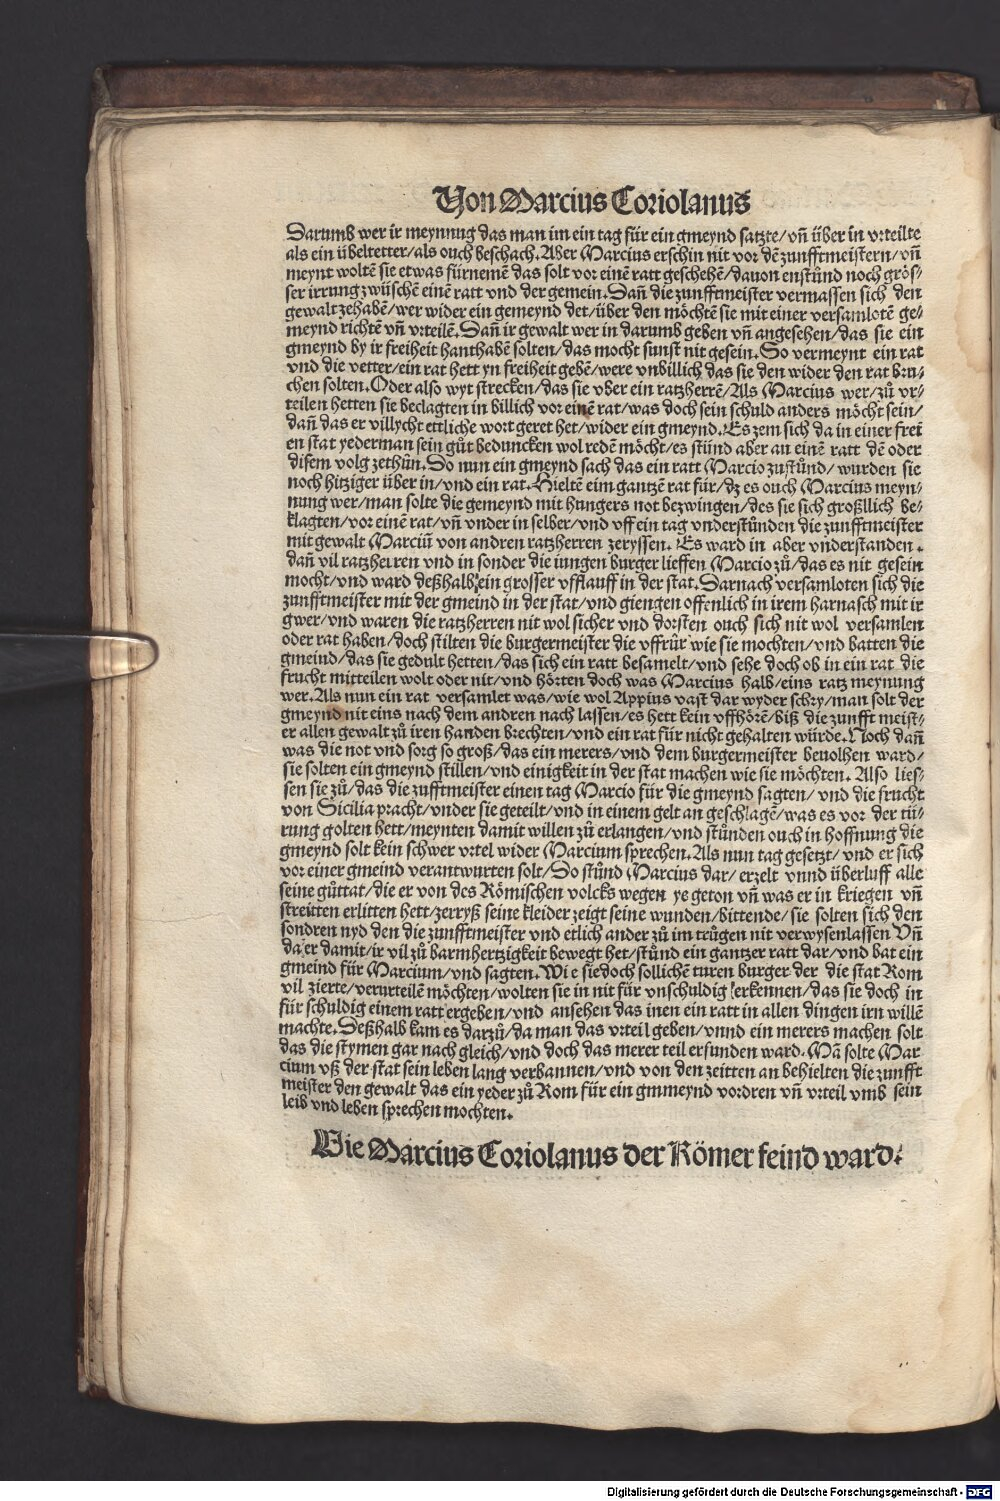 Von Marcius Coriolanus
Darumb wer ir meynnug das man im ein tag für ein gmeynd satzte/ vñ über in vrteilte
als ein übeltetter/als ouch beschach. Aber Marcius erschin nit vor dẽ zunfftmeistern/vñ
meynt woltẽ sie etwas fürnemẽ das solt vor einẽ ratt geschehẽ/dauon enstůnd noch grös⸗
ser irrung zwüschẽ einẽ ratt vnd der gemein. Dañ die zunfftmeister vermassen sich den
gewalt zehabẽ/wer wider ein gemeynd det/über den möchtẽ sie mit einer versamlotẽ ge⸗
meynd richtẽ vñ vrteilẽ. Dañ ir gewalt wer in darumb geben vñ angesehen/das sie ein
gmeynd by ir freiheit hanthabẽ solten/das mocht sunst nit gesein. So vermeynt ein rat
vnd die vetter/ein rat hett yn freiheit gebẽ/were vnbillich das sie den wider den rat bru⸗
chen solten. Oder also wyt strecken/das sie vber ein ratzherrẽ/Als Marcius wer/zů vr⸗
teilen hetten sie beclagten in billich vor einẽ rat/was doch sein schuld anders möcht sein/
dañ das er villycht ettliche wort geret het/wider ein gmeynd. Es zem sich da in einer frei
en stat yederman sein gůt beduncken wol redẽ möcht/es stünd aber an einẽ ratt dẽ oder
disem volg zethůn. Do nun ein gmeynd sach das ein ratt Marcio zustůnd/ wurden sie
noch hitziger über in/vnd ein rat. Hieltẽ eim gantzẽ rat für/dz es ouch Marcius meyn⸗
nung wer/man solte die gemeynd mit hungers not bezwingen/des sie sich großllich be⸗
klagten/vor einẽ rat/vñ vnder in selber/vnd vff ein tag vnderstůnden die zunfftmeister
mit gewalt Marciũ von andren ratzherren zeryssen. Es ward in aber vnderstanden.
dañ vil ratzherren vnd in sonder die iungen burger lieffen Marcio zů/das es nit gesein
mocht/vnd ward deßhalb ein grosser vfflauff in der stat. Darnach versamloten sich die
zunfftmeister mit der gmeind in der stat/vnd giengen offenlich in irem harnasch mit ir
gwer/vnd waren die ratzherren nit wol sicher vnd dorsten ouch sich nit wol versamlen
oder rat haben/doch stilten die burgermeister die vffrůr wie sie mochten/vnd batten die
gmeind/das sie gedult hetten/das sich ein ratt besamelt/vnd sehe doch ob in ein rat die
frucht mitteilen wolt oder nit/vnd hörten doch was Marcius halb/eins ratz meynung
wer. Als nun ein rat versamlet was/wie wol Appius vast dar wyder schry/man solt der
gmeynd nit eins nach dem andren nach lassen/es hett kein vffhörẽ/biß die zunfft meist⸗
er allen gewalt zů iren handen brechten/vnd ein rat für nicht gehalten würde. Noch dañ
was die not vnd sorg so groß/das ein merers/vnd dem burgermeister beuolhen ward/
sie solten ein gmeynd stillen/vnd einigkeit in der stat machen wie sie möchten. Also lies⸗
sen sie zů/das die zufftmeister einen tag Marcio für die gmeynd sagten/ vnd die frucht
von Sicilia pracht/vnder sie geteilt/vnd in einem gelt an geschlagẽ/was es vor der tü⸗
rung golten hett/meynten damit willen zů erlangen/vnd stůnden ouch in hoffnung die
gmeynd solt kein schwer vrtel wider Marcium sprechen. Als nun tag gesetzt/ vnd er sich
vor einer gmeind verantwurten solt/So stůnd Marcius dar/ erzelt vnnd überluff alle
seine gůttat/die er von des Römischen volcks wegen ye geton vñ was er in kriegen vñ
streitten erlitten hett/zerryß seine kleider zeigt seine wunden/bittende/sie solten sich den
sondren nyd den die zunfftmeister vnd etlich ander zů im trůgen nit verwysenlassen Vñ
da er damit/ir vil zů barmhertzigkeit bewegt het/stůnd ein gantzer ratt dar/vnd bat ein
gmeind für Marcium/vnd sagten. Wi e siedoch sollichẽ turen burger der die stat Rom
vil zierte/verurteilẽ möchten/wolten sie in nit für vnschuldig erkennen/das sie doch in
für schuldig einem ratt ergeben/vnd ansehen das inen ein ratt in allen dingen irn willẽ
machte. Deßhalb kam es darzů/da man das vrteil geben/vnnd ein merers machen solt
das die stymen gar nach gleich/vnd doch das merer teil erfunden ward. Mã solte Mar
cium vß der stat sein leben lang verbannen/vnd von den zeitten an behielten die zunfft
meister den gewalt das ein yeder zů Rom für ein gmmeynd vordren vñ vrteil vmb sein
leib vnd leben sprechen mochten.
Wie Marcius Coriolanus der Römer feind ward.
Digitalisierung gefördert durch die Deutsche Forschungsgemeinschaft - DFG